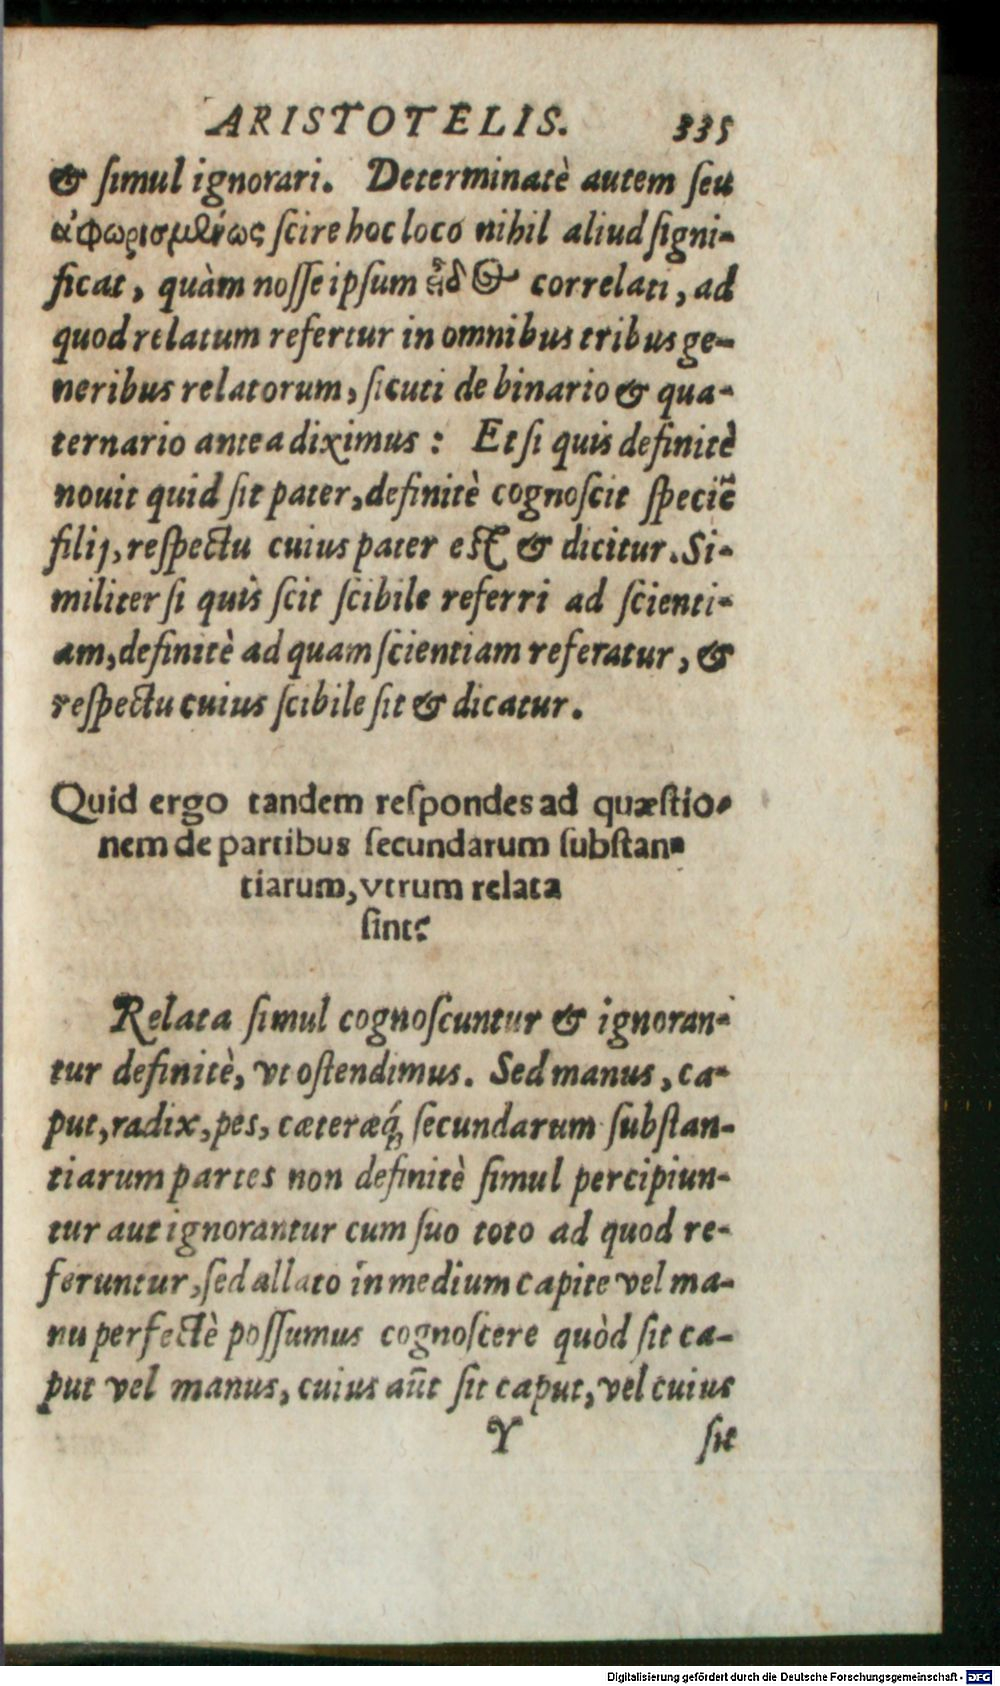 ARISTOTELIS. 335
& ſimul ignorari. Determinatè autem ſeu
ἀφωρισμένως ſcire hoc loco nihil aliud ſigni-
ficat, quàm noſſe ipſum εἶδος correlati, ad
quod relatum refertur in omnibus tribus ge-
neribus relatorum, ſicuti de binario & qua-
ternario antea diximus: Et ſi quis definitè
nouit quid ſit pater, definitè cognoſcit ſpeciẽ
filij, reſpectu cuius pater eſt & dicitur. Si-
militer ſi quis ſcit ſcibile referri ad ſcienti-
am, definitè ad quam ſcientiam referatur, &
reſpectu cuius ſcibile ſit & dicatur.
Quid ergo tandem reſpondes ad quæſtio-
nem de partibus ſecundarum ſubſtan-
tiarum, vtrum relata
ſint?
Relata ſimul cognoſcuntur & ignoran-
tur definitè, vt oſtendimus. Sed manus, ca-
put, radix, pes, cæteræq́ ſecundarum ſubſtan-
tiarum partes non definitè ſimul percipiun-
tur aut ignorantur cum ſuo toto ad quod re-
feruntur, ſed allato in medium capite vel ma-
nu perfectè poſſumus cognoſcere quòd ſit ca-
put vel manus, cuius aũt ſit caput, vel cuius
Y ſit
Digitalisierung gefördert durch die Deutsche Forschungsgemeinschaft - DFG